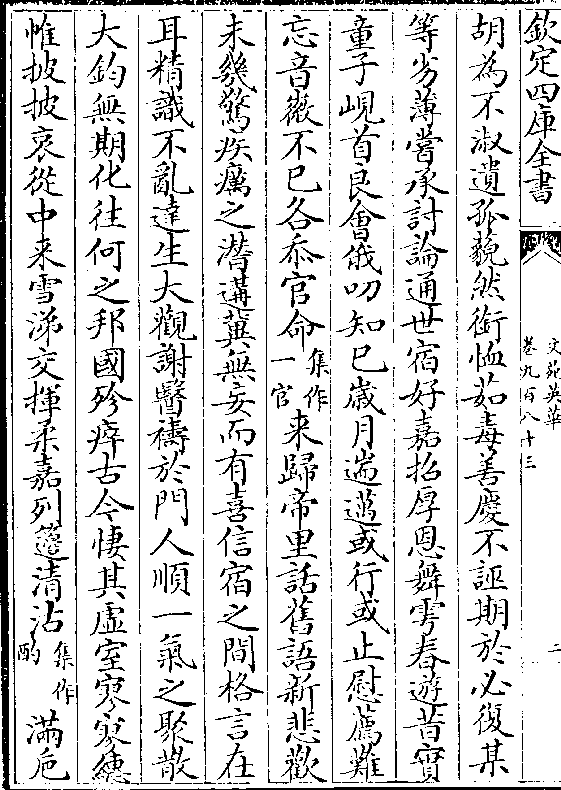 欽定四庫全書
文苑英華
卷九百八十三
二
胡為不淑遺孤藐然銜恤茹毒善慶不誣期於必復某
等劣薄嘗承討論通世宿好嘉招厚恩舞雩春遊昔實
童子峴首良會俄叨知己歲月遄邁或行或止慰薦難
忘音徽不已各忝官命集作一官来歸帝里話舊語新悲歡
未幾驚疾癘之潛遘冀無妄而有喜信宿之間格言在
耳精識不亂達生大觀謝醫禱於門人順一氣之聚散
大鈞無期化往何之邦國殄瘁古今悽其虛室寥寥繐
帷披披哀從中来雪涕交揮柔嘉列簋清沾集作酌滿卮